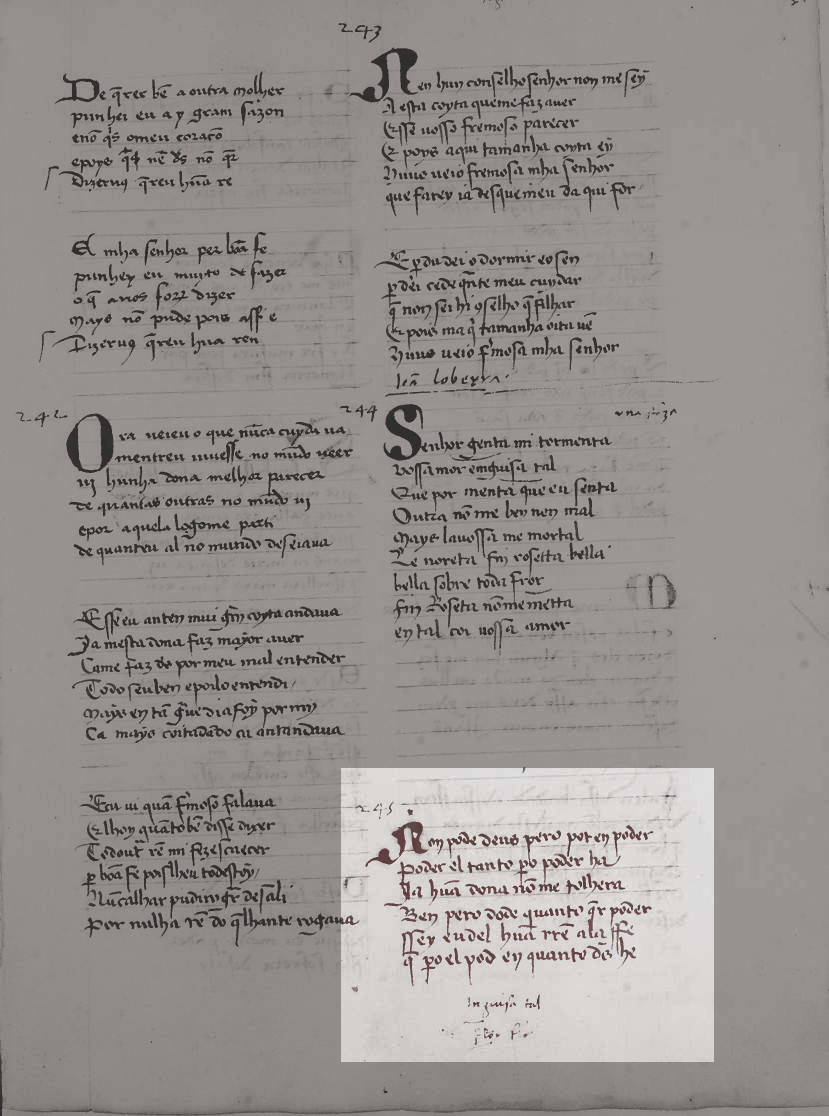 243
De q̃rer bẽ a outra molher
punhei eu a y gram sazon
enõ q̃s omeu coraçõ
epoys q̃ nẽ d̃s nõ q̃r
Dizeruꝯ q̃reu hũa re
El mha senhor per boã fe
punhey eu muyto de fazer
o q̃ a uos forõ dizer
Mays nõ pude pois assi e
Dizeruꝯ q̃reu hũa ren
242
Ora ueieu o que nũca cuydaua
mentreu uiuesse no mũdo ueer
ui hunha dona melhor parecer
de quantas outras no mũdo ui
epor aquela logome parti
de quanteu al no mundo deseiaua
Esseu anten mui g̃m coyta andaua
Ja mesta dona faz mayor auer
Came faz d̃s por meu mal entender
Todo seu ben epoilo entendi
Mays en tã g̃ue dia foy por mi
Ca mays coitadado ca antandaua
Eeu ui quã f̃moso falaua
Elhoy quãto bẽ disse dizer
Todout̃ rẽ mi fez escaecer
p̱ boã fe poislheu todestoy
Nũcalhar pudirogr̃ desali
Por nulha rẽ do q̃lhante rogaua
Nen hun conselho senhor non me sey
A esta coyta queme faz auer
Esse uosso fremoso parecer
E poys aqui tamanha coyta ey
Huuꝯ ueio fremosa mha senhor
que farey ia desquemeu da qui for
E p̱du dei o dormir eo sen
p̱dei cede q̃nte meu cuydar
q̃ non sei hi ꝯselho q̃ filhar
E pois ma q̃ tamanha coita uẽ
Huuꝯ ueio f̃mosa mha senhor
Joã lobeyra
244
Senhor genta mi tormenta
vossamor enguisa tal
Que por menta que eu senta
Outra nõ me ben nen mal
Mays lauossa me mortal
Le noreta fin rosetta bella
bella sobre toda fror
fin Roseta nõme metta
en tal coi uossa amor
245
Non pode deus pero pot en poder
Poder el tanto p̱o poder ha
Ja hũa dona nõ me tolhera
Ben pero dode quanto q̃r poder
ssey eu del hũa rrẽ a la ffe
q̃ p̱o el pod en quanto d̃s he
In guisa tal